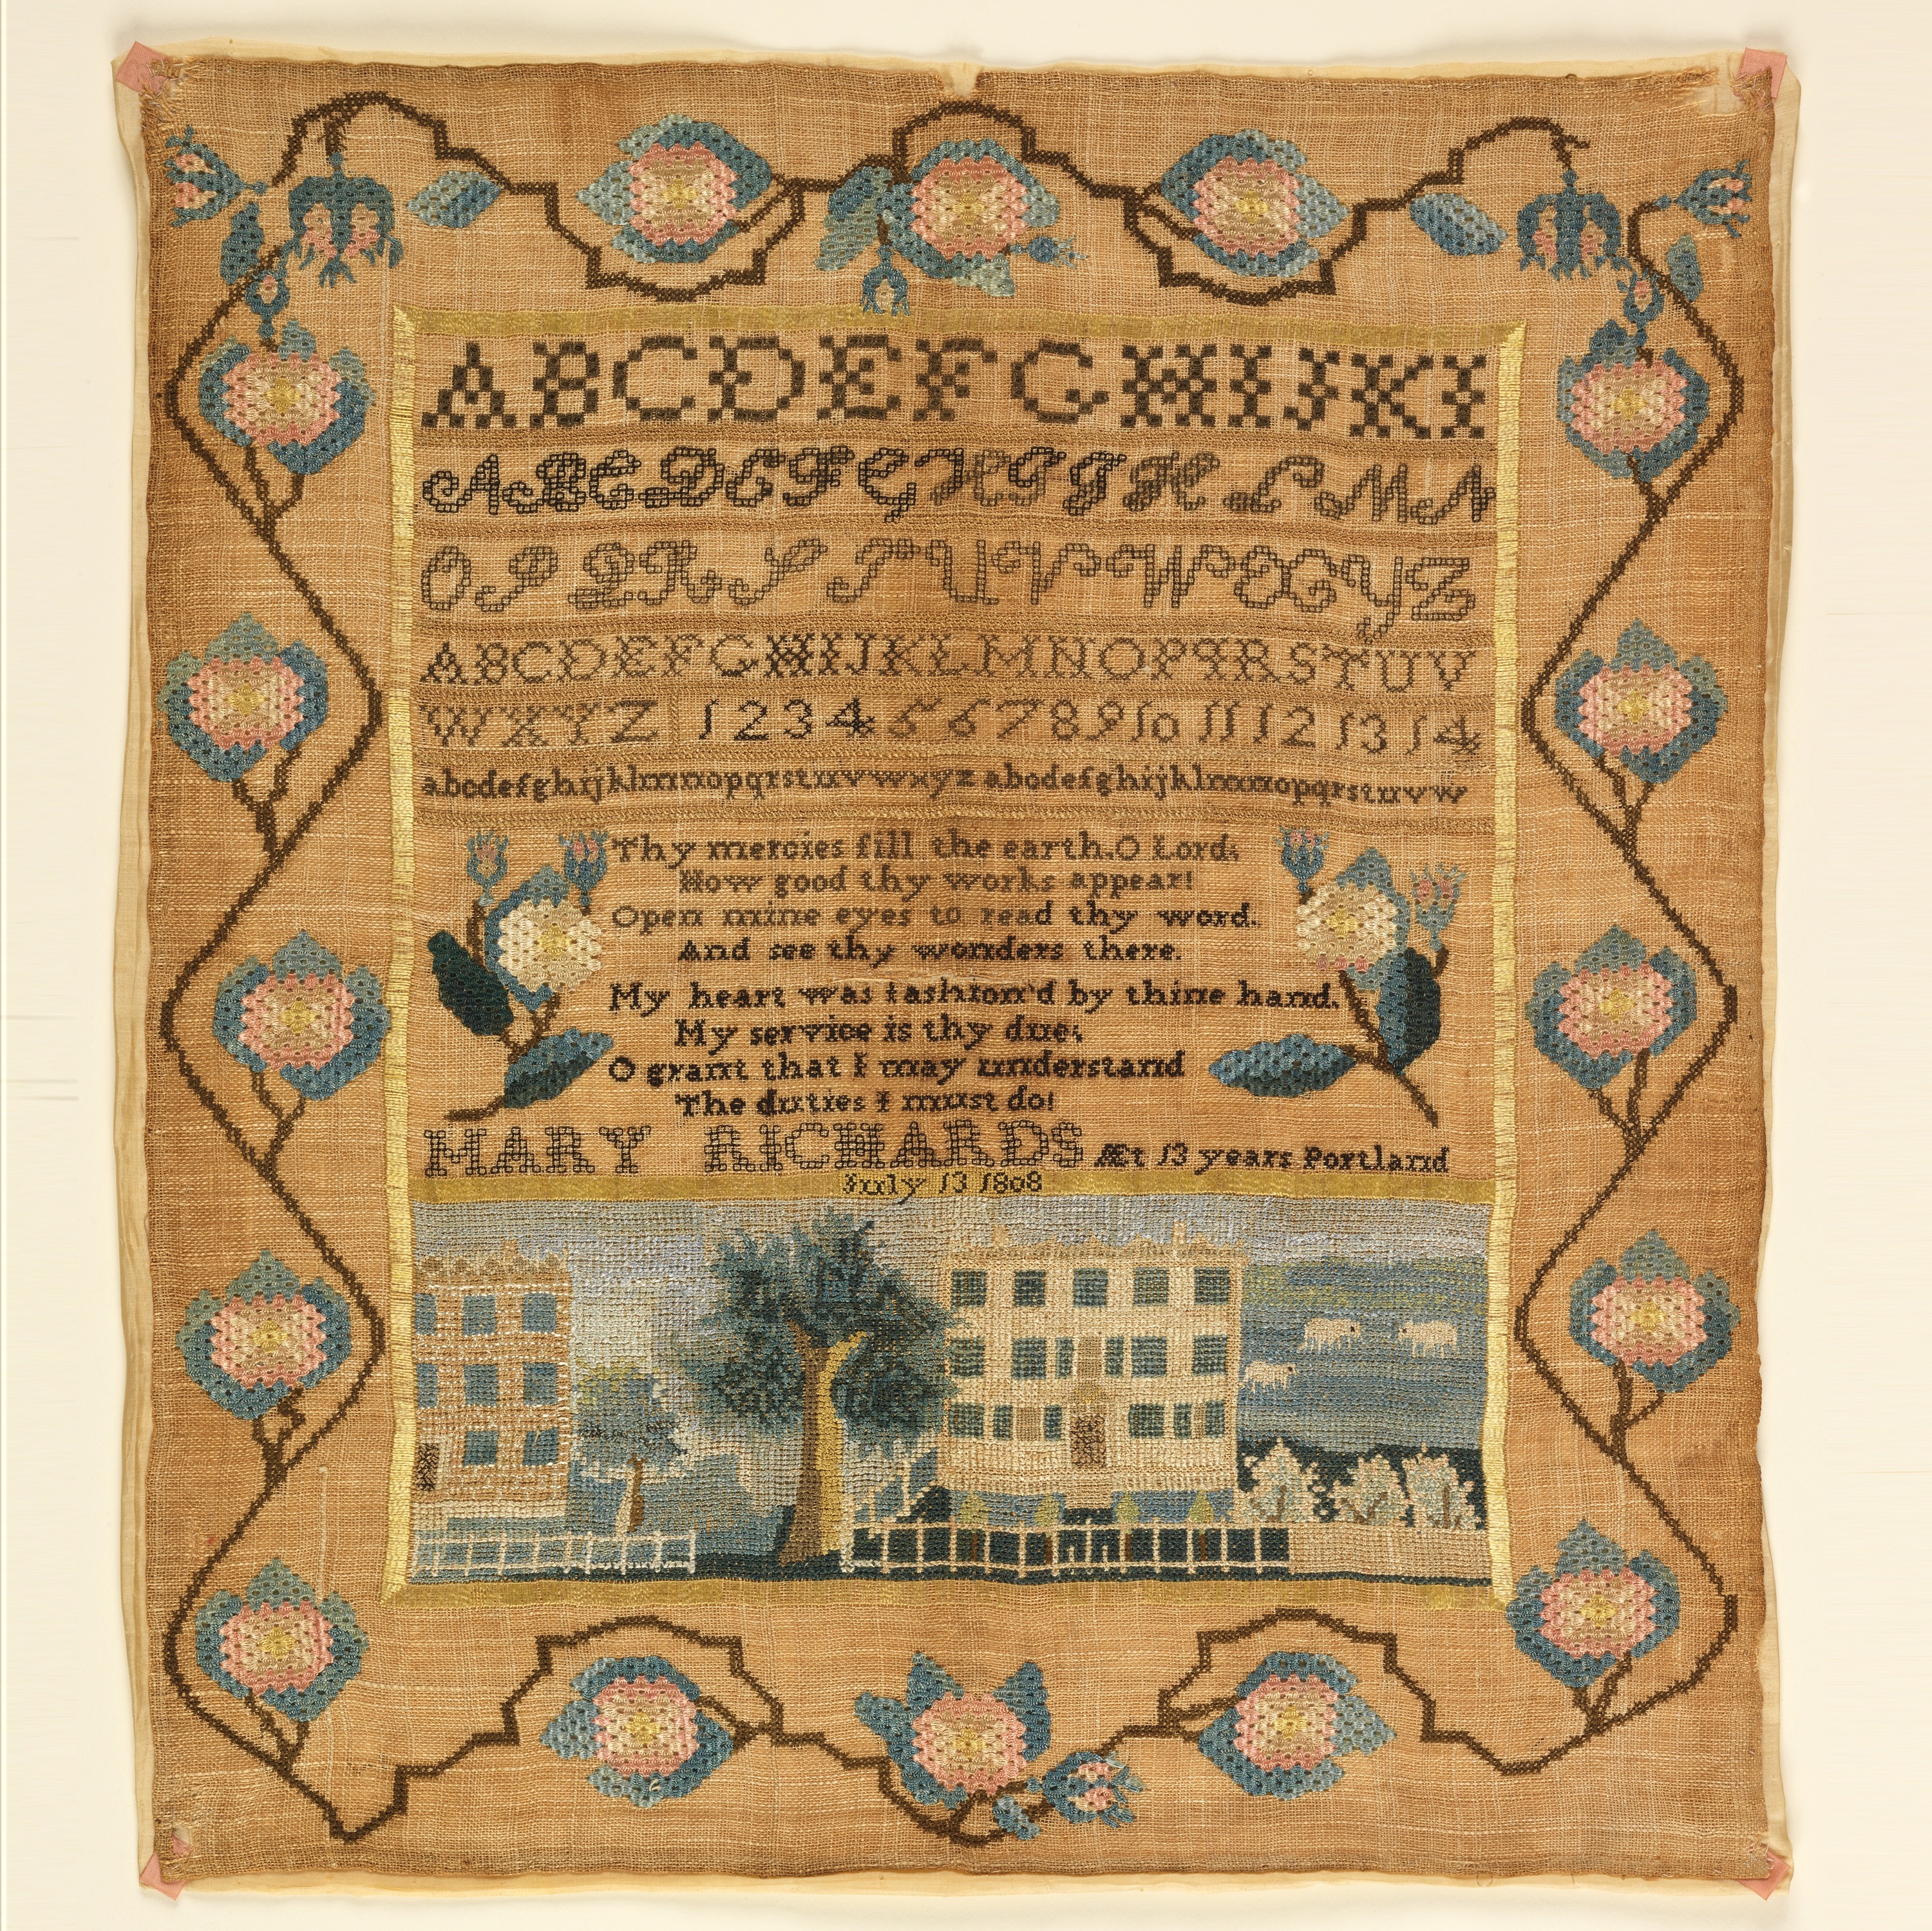 ABCDEFGHIJKI
ABCDEFGHIJKLMN
OPQRSTUVWXYZ
ABCDEFGHIJKLMNOPQRSTUV
WXYZ 1 2 3 4 5 6 7 8 9 10 11 12 13 14
abcdefghijklmnopqrstuvwxyz abcdefghijklmnopqrstuvw
Thy mercies fill the earth, O Lord,
How good thy works appear!
Open mine eyes to read thy word,
And see thy wonders there.
My heart was fashion'd by thine hand,
My service is thy due;
O grant that I may understand
The duties I must do!
MARY RICHARDS Æt 13 years Portland
July 13 1808